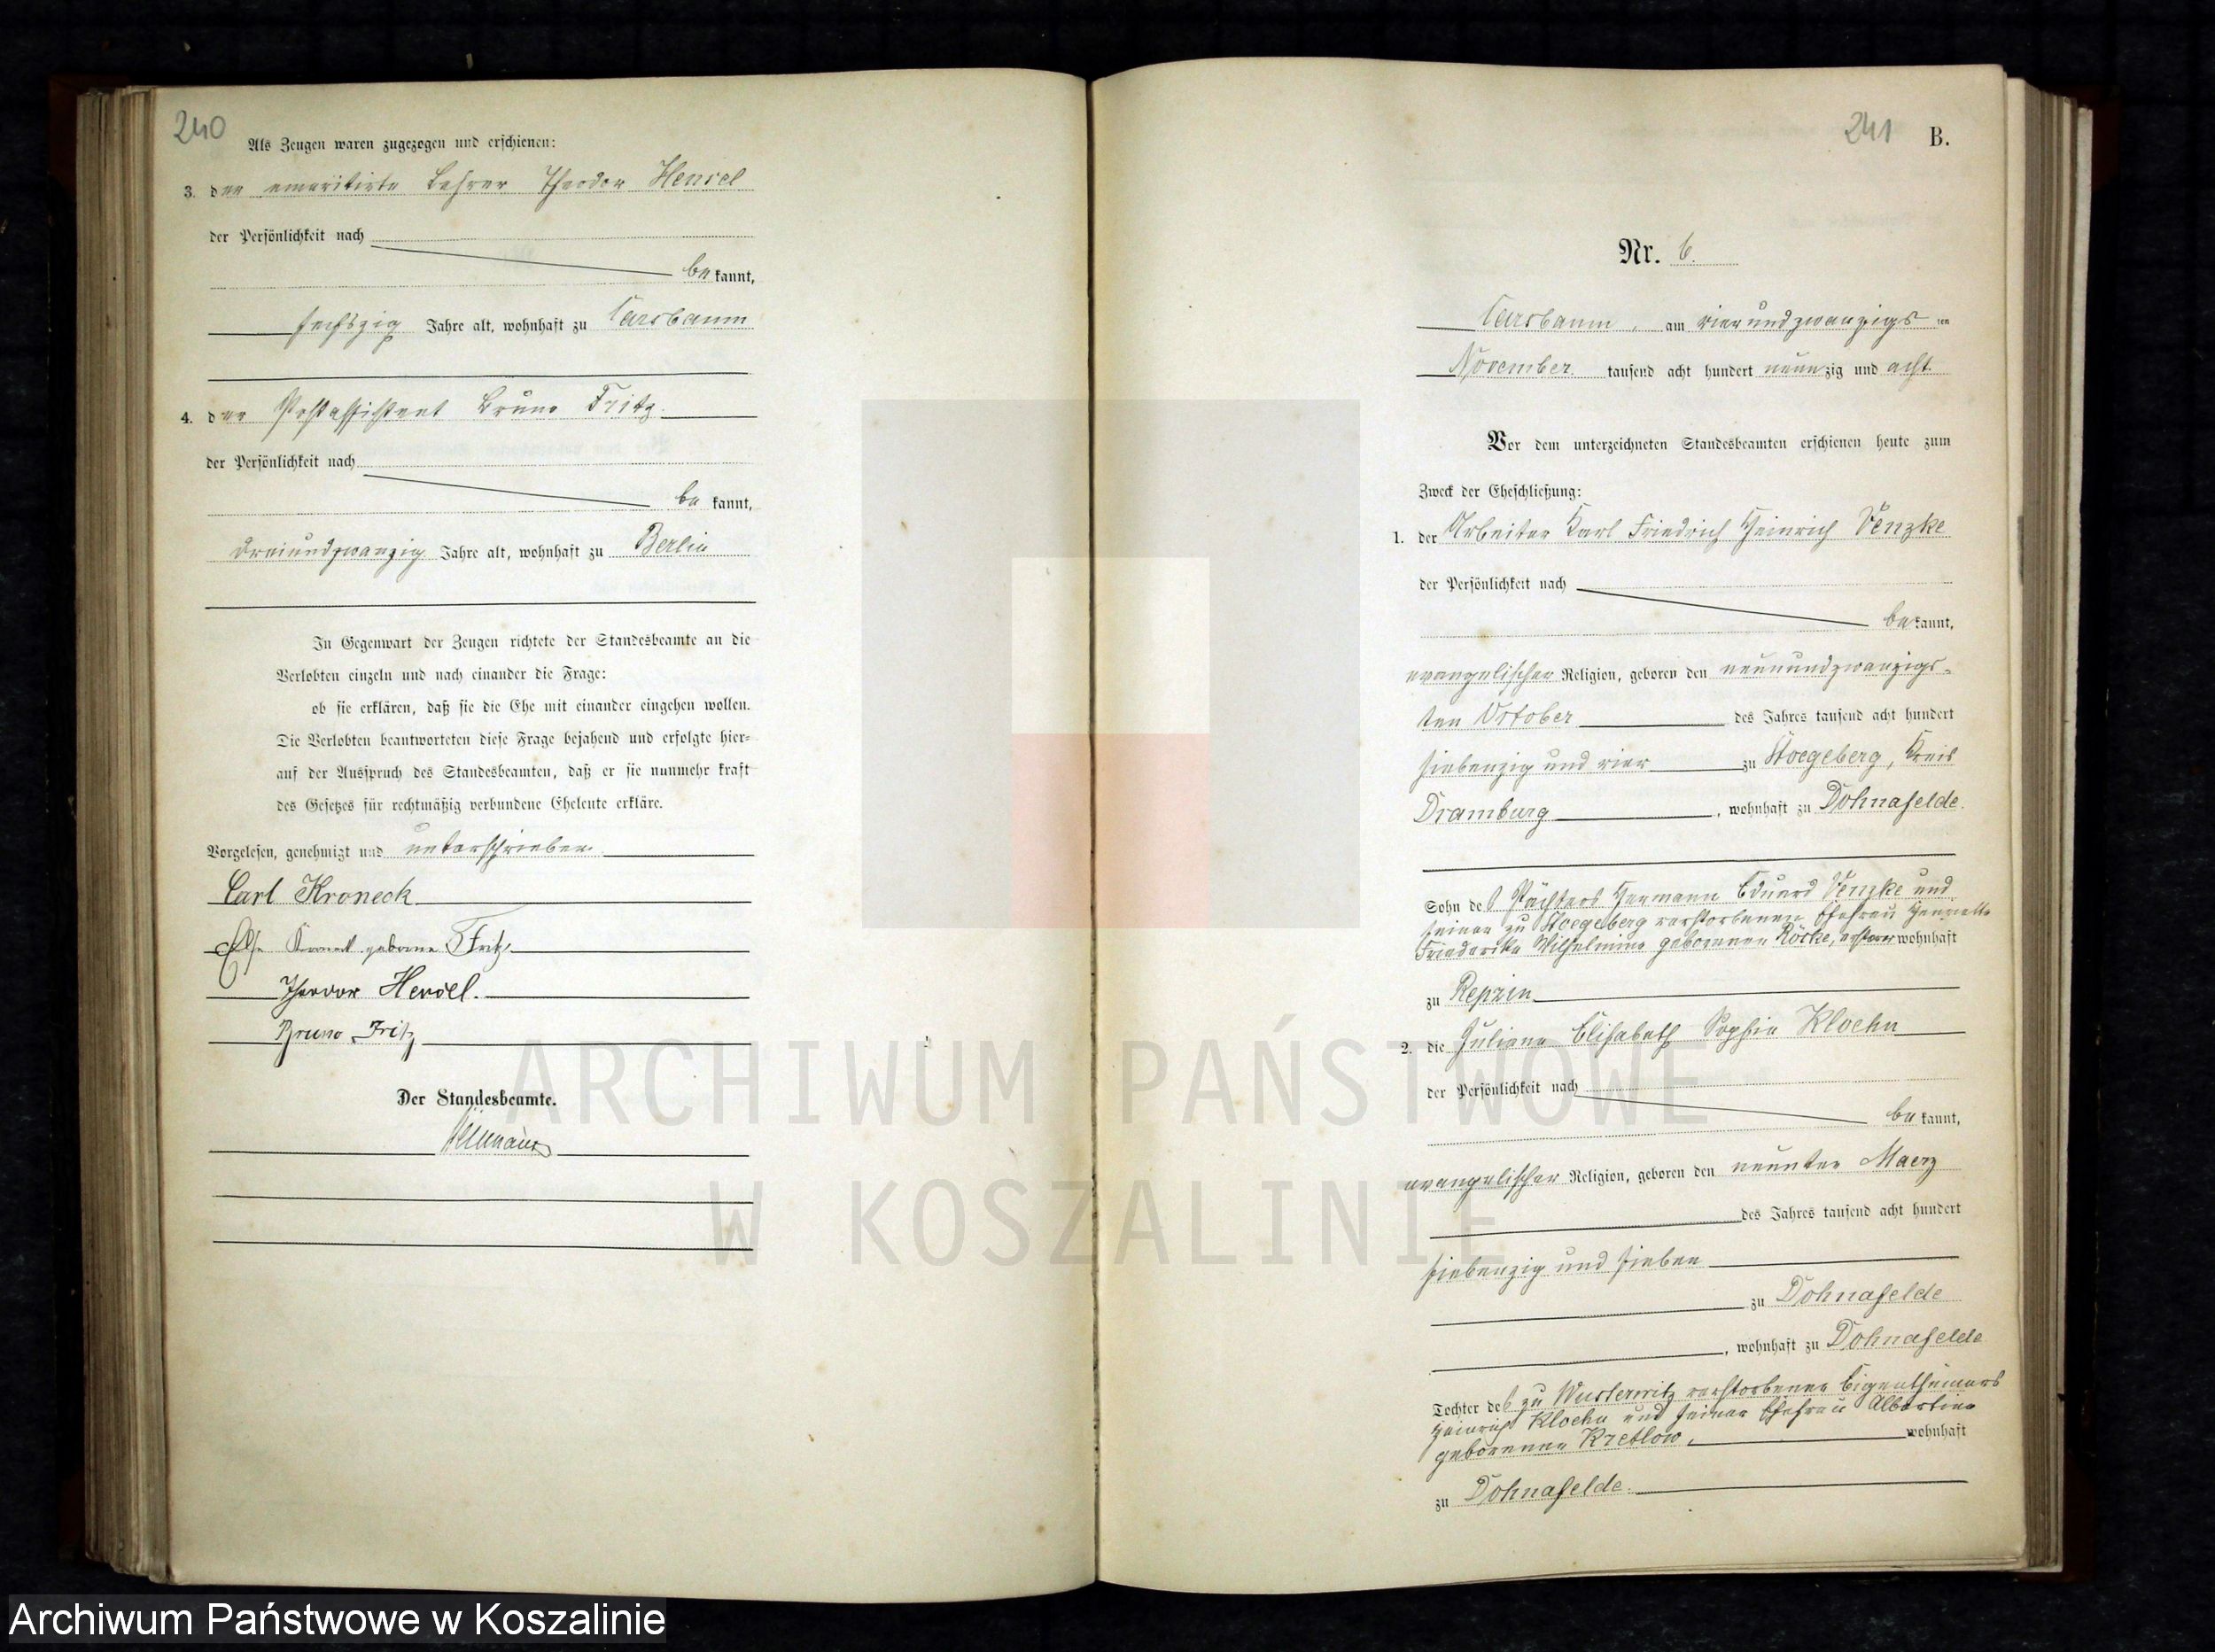 240
Als Zeugen waren zugezogen und erschienen:
3. der emeritirte Lehrer Theodor Hensel
der Persönlichkeit nach
bekannt,
sechszig Jahre alt, wohnhaft zu Carsbaum
4. der Postassistent Bruno Fritz
der Persönlichkeit nach
be kannt,
dreiundzwanzig Jahre alt, wohnhaft zu Berlin
In Gegenwart der Zeugen richtete der Standesbeamte an die
Verlobten einzeln und nach einander die Frage:
ob sie erklären, daß sie die Ehe mit einander eingehen wollen.
Die Verlobten beantworteten diese Frage bejahend und erfolgte hier-
auf der Ausspruch des Standesbeamten, daß er sie nunmehr kraft
des Gesetzes für rechtmäßig verbundene Eheleute erkläre.
Vorgelesen, genehmigt und unterschrieben
Carl Kroneck
Else Kroneck geborene Fritz
Theodor Hensel.
Bruno Fritz
Der Standesbeamte.
241
B.
Nr. 6.
Carsbaum, am vierundzwanzigs ten
November tausend acht hundert neunzig und acht
Vor dem unterzeichneten Standesbeamten erschienen heute zum
Zweck der Eheschließung:
1. der Arbeiter Karl Friedrich Heinrich Venzke
der Persönlichkeit nach
bekannt,
evangelischer Religion, geboren den neunundzwanzigs-
ten October des Jahres tausend acht hundert
siebenzig und vier zu Stoegeberg, Kreis
Dramburg, wohnhaft zu Dohnafelde.
Sohn des Pächters Hermann Eduard Venzke und
seiner zu Stoegeberg verstorbenen Ehefrau Henriette
Friederike Wilhelmine geborenen Röske, ersterer wohnhaft
zu Repzin
2. die Juliane Elisabeth Sophie Kloehn
der Persönlichkeit nach
be kannt,
evangelischer Religion, geboren den neunten Maerz
des Jahres tausend acht hundert
siebenzig und sieben
zu Dohnafelde
, wohnhaft zu Dohnafelde
Tochter des zu Wusterwitz verstorbenen Eigenthümers
Heinrich Kloehn und seiner Ehefrau Albertine
geborenen Kretlow, wohnhaft
zu Dohnafelde.
ARCHIWUM PAŃSTWOWE
W KOSZALINIE
Archiwum Państwowe w Koszalinie